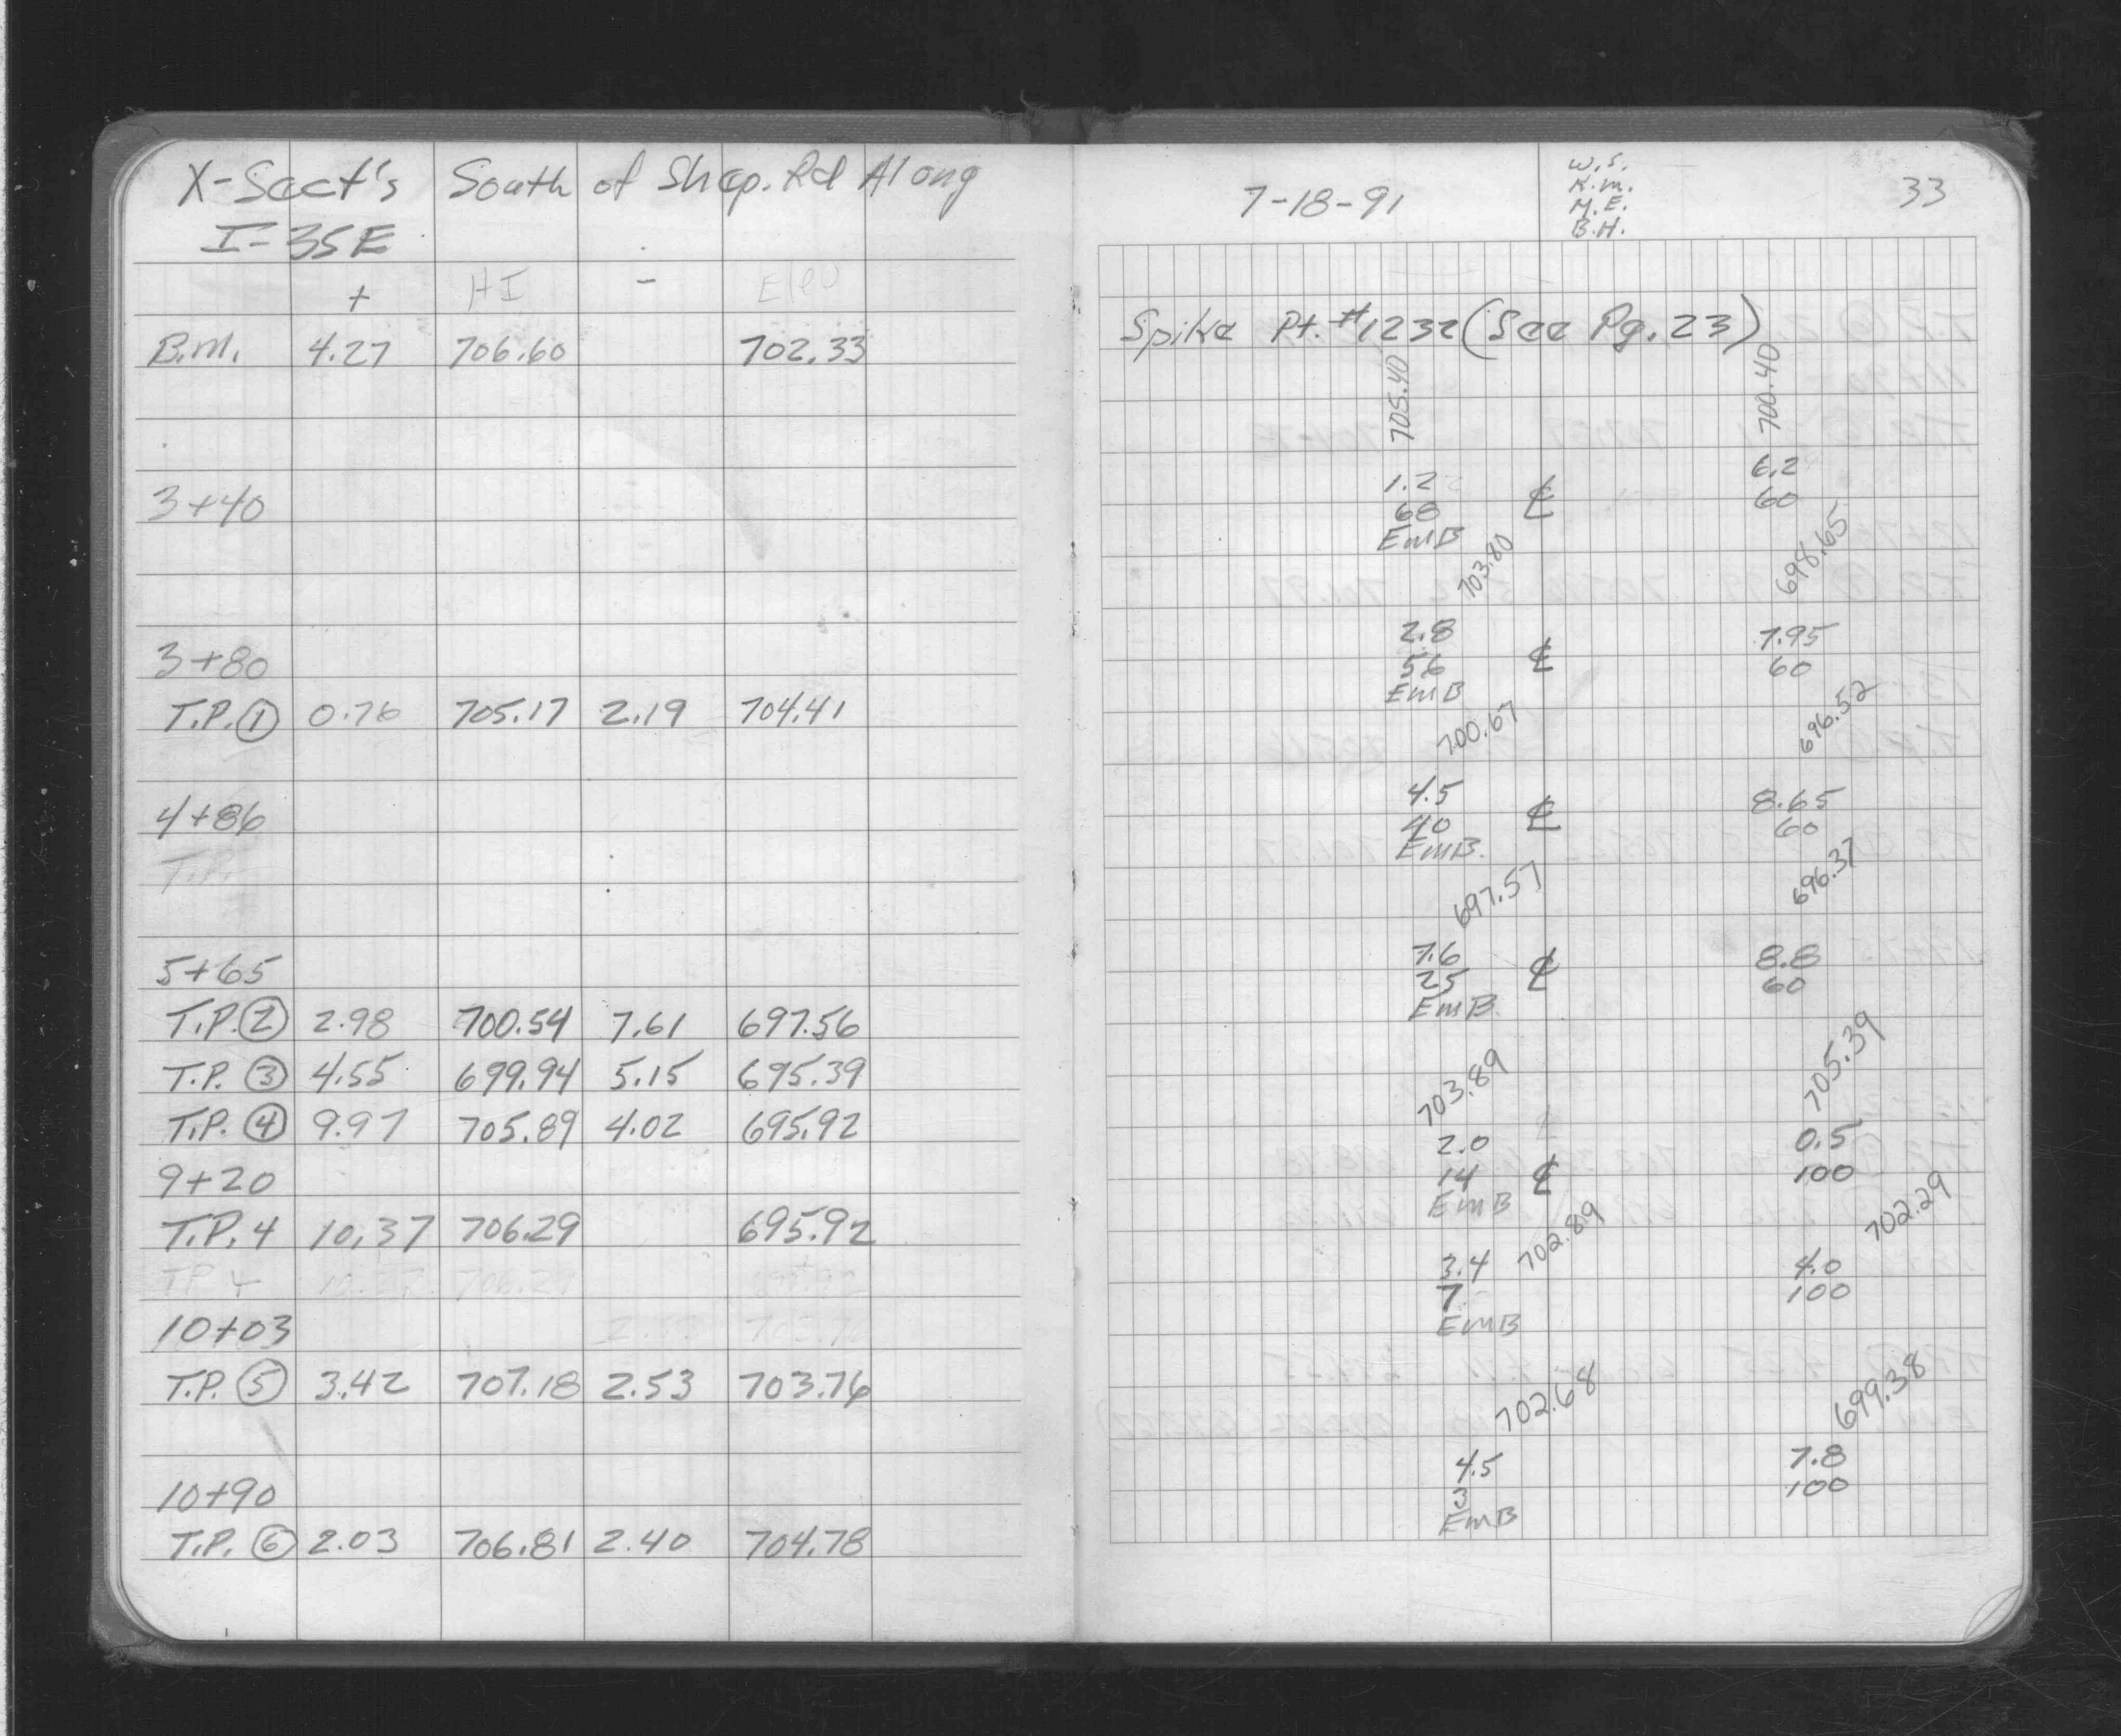 X-Sect's South of Shep. Rd Along
I-35E
+ HI - Elev
B.M. 4.27 706.60 702.33
3+40
3+80
T.P. 1 0.76 705.17 2.19 704.41
4+86
T.P.
5+65
T.P. 2 2.98 700.54 7.61 697.56
T.P. 3 4.55 699.94 5.15 695.39
T.P. 4 9.97 705.89 4.02 695.92
9+20
T.P. 4 10.37 706.29 695.92
TP 4 10.37 706.29
10+03
T.P. 5 3.42 707.18 2.53 703.76
10+90
T.P. 6 2.03 706.81 2.40 704.78
7-18-91
W.S.
K.M.
M.E.
B.H.
33
Spike Pt. #1232 (See Pg. 23)
705.40 700.40
1.2 6.2
68 ℄ 60
EmB
703.80 698.65
2.8 7.95
56 ℄ 60
EmB
700.67 696.52
4.5 8.65
40 ℄ 60
EmB.
697.57 696.37
7.6 8.8
25 ℄ 60
EmB.
703.89 705.39
2.0 0.5
14 ℄ 100
EmB
702.89 702.29
3.4 4.0
7 100
EmB
702.68 699.38
4.5 7.8
3 100
EmB